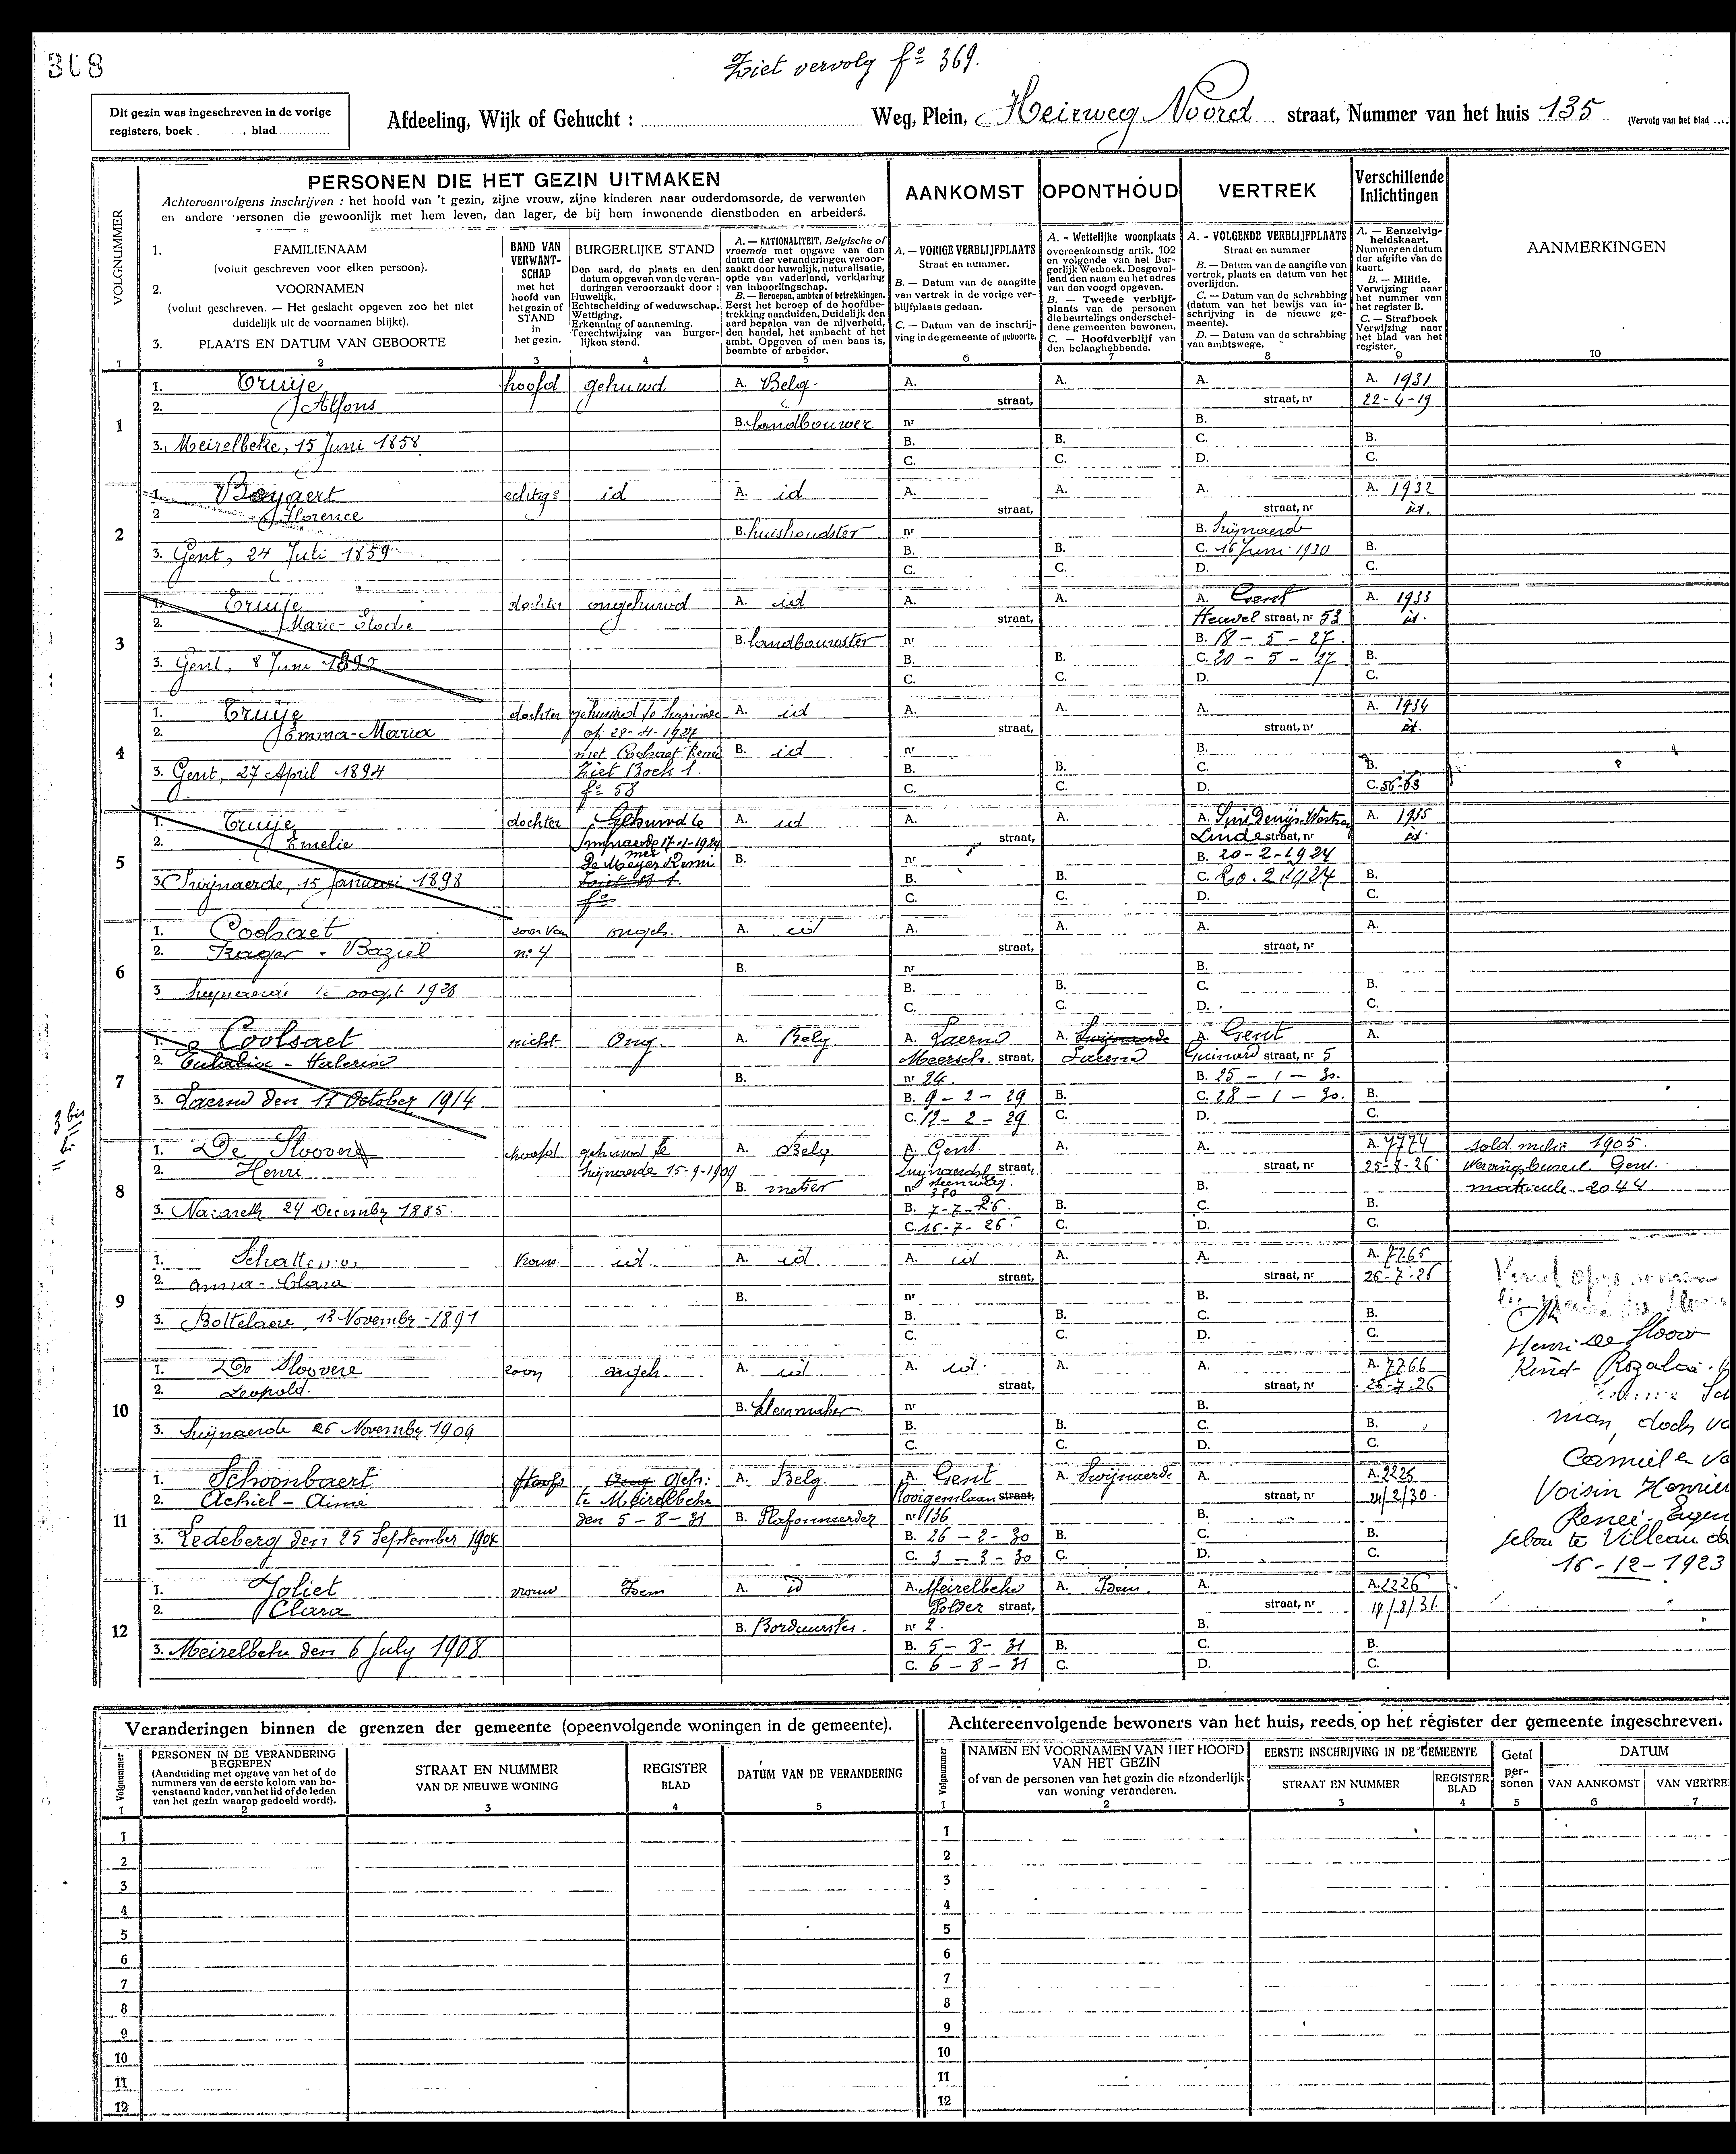 308
Ziet vervolg fº 369.
Dit gezin was ingeschreven in de vorige
registers, boek ............, blad ............
Afdeeling, Wijk of Gehucht : ............ Weg, Plein, Heirweg Noord straat, Nummer van het huis 135 (Vervolg van het blad ....
VOLGNUMMER
PERSONEN DIE HET GEZIN UITMAKEN
Achtereenvolgens inschrijven : het hoofd van 't gezin, zijne vrouw, zijne kinderen naar ouderdomsorde, de verwanten
en andere personen die gewoonlijk met hem leven, dan lager, de bij hem inwonende dienstboden en arbeiders.
AANKOMST
OPONTHOUD
VERTREK
Verschillende
Inlichtingen
1. FAMILIENAAM
(voluit geschreven voor elken persoon).
2. VOORNAMEN
(voluit geschreven. — Het geslacht opgeven zoo het niet
duidelijk uit de voornamen blijkt).
3. PLAATS EN DATUM VAN GEBOORTE
BAND VAN
VERWANT-
SCHAP
met het
hoofd van
het gezin of
STAND
in
het gezin.
BURGERLIJKE STAND
Den aard, de plaats en den
datum opgeven van de veran-
deringen veroorzaakt door :
Huwelijk.
Echtscheiding of weduwschap.
Wettiging.
Erkenning of aanneming.
Terechtwijzing van burger-
lijken stand.
A. — NATIONALITEIT. Belgische of
vreemde met opgave van den
datum der veranderingen veroor-
zaakt door huwelijk, naturalisatie,
optie van vaderland, verklaring
van inboorlingschap.
B. — Beroepen, ambten of betrekkingen.
Eerst het beroep of de hoofdbe-
trekking aanduiden. Duidelijk den
aard bepalen van de nijverheid,
den handel, het ambacht of het
ambt. Opgeven of men baas is,
beambte of arbeider.
A. — VORIGE VERBLIJFPLAATS
Straat en nummer.
B. — Datum van de aangifte
van vertrek in de vorige ver-
blijfplaats gedaan.
C. — Datum van de inschrij-
ving in de gemeente of geboorte.
A. - Wettelijke woonplaats
overeenkomstig artik. 102
en volgende van het Bur-
gerlijk Wetboek. Desgeval-
lend den naam en het adres
van den voogd opgeven.
B. — Tweede verblijf-
plaats van de personen
die beurtelings onderschei-
dene gemeenten bewonen.
C. — Hoofdverblijf van
den belanghebbende.
A. - VOLGENDE VERBLIJFPLAATS
Straat en nummer
B. — Datum van de aangifte van
vertrek, plaats en datum van het
overlijden.
C. — Datum van de schrabbing
(datum van het bewijs van in-
schrijving in de nieuwe ge-
meente).
D. — Datum van de schrabbing
van ambtswege.
A. — Eenzelvig-
heidskaart.
Nummer en datum
der afgifte van de
kaart.
B. — Militie.
Verwijzing naar
het nummer van
het register B.
C. — Strafboek
Verwijzing naar
het blad van het
register.
AANMERKINGEN
1 2 3 4 5 6 7 8 9 10
1
1. Truije hoofd gehuwd A. Belg A. A. A. A. 1931
2. Alfons straat, straat, nr 22-4-19
B. Landbouwer nr B.
3. Meirelbeke, 15 Juni 1858 B. B. C. B.
C. C. D. C.
2
1. Boyaert echtge id A. id A. A. A. A. 1932
2 Florence straat, straat, nr id.
B. huishoudster nr B. Swijnaerde
3. Gent, 24 Juli 1859 B. B. C. 16 Juni 1930 B.
C. C. D. C.
3
1. Truije dochter ongehuwd A. id A. A. A. Gent A. 1933
2. Marie-Elodie straat, Heuvel straat, nr 53 id.
B. landbouwster nr B. 18 - 5 - 27.
3. Gent, 8 Juni 1890 B. B. C. 20 - 5 - 27 B.
C. C. D. C.
4
1. Truije dochter gehuwd te A. id A. A. A. A. 1934
2. Emma-Maria op 28-4-1927 straat, straat, nr id.
met Coolsaet Remi B. id nr B.
3. Gent, 27 April 1894 Ziet Boek 1. B. B. C. B.
fº 58 C. C. D. C. 56-63
5
1. Truije dochter Gehuwd te A. id A. A. A. Sint Denijs-Westrem A. 1935
2. Emelie 17-1-1924 straat, Linde straat, nr id.
met
De Meyer Remi B. nr B. 20-2-1924
3. Swijnaerde, 15 Januari 1898 B. B. C. 20.2.1924 B.
fº C. C. D. C.
6
1. Coolsaet zoon van ongeh. A. id A. A. A. A.
2. Roger - Baziel nº 4 straat, straat, nr
B. nr B.
3 B. B. C. B.
C. C. D. C.
3 bis
7
1. Coolsaet nicht Ong. A. Belg A. Laerne A. Swijnaerde A. Gent A.
2. Eulalia - Valeria Meersch. straat, Laerne Guinard straat, nr 5
B. nr 24. B. 25 - 1 - 30.
3. Laerne den 11 October 1914 B. 9 - 2 - 29 B. C. 28 - 1 - 30. B.
C. 12 - 2 - 29 C. D. C.
8
1. De Sloovere hoofd gehuwd te A. Belg A. Gent. A. A. A. 7774 Sold. militie 1905.
2. Henri Swijnaerde 15-9-1909 straat, straat, nr 25-8-26 Wervingsbureel Gent.
steenweg.
B. metser nr 380 B. matricule 2044.
3. Nazareth 24 December 1885. B. 7-7-26. B. C. B.
C. 16-7-26. C. D. C.
9
1. vrouw id. A. id. A. id A. A. A. 7765
2. Anna-Clara straat, straat, nr 26-7-26
B. nr B.
3. Bottelaere, 13 November 1891 B. B. C. B.
C. C. D. C.
Henri De Sloov
10
1. De Sloovere zoon ongeh. A. id A. id. A. A. A. 7766 Kind Rozalia
2. Leopold. straat, straat, nr 26-7-26
B. Kleermaker nr B. man, doch va
3. Swijnaerde 26 November 1909 B. B. C. B.
C. C. D. C. Camiel en va
11
1. Schoonbaert Hoofd Ong Geh: A. Belg. A. Gent A. Swijnaerde A. A. 2225 Voisin Henrie
2. Achiel - Aimé te Meirelbeke Rooigemlaan straat, straat, nr 24/2/30. Reneé Eugen
den 5 - 8 - 31 B. Plafonneerder nr 136 B.
3. Ledeberg den 25 September 1904 B. 26 - 2 - 30 B. C. B. gebor te Villeau
C. 3 - 3 - 30 C. D. C. 16-12-1923
12
1. Joliet vrouw Idem A. id A. Meirelbeke A. Idem. A. A. 2226
2. Clara Polder straat, straat, nr 14/8/31.
B. Borduurster. nr 2. B.
3. Meirelbeke den 6 July 1908 B. 5 - 8 - 31 B. C. B.
C. 6 - 8 - 31 C. D. C.
Veranderingen binnen de grenzen der gemeente (opeenvolgende woningen in de gemeente).
Volgnummer
PERSONEN IN DE VERANDERING
BEGREPEN
(Aanduiding met opgave van het of de
nummers van de eerste kolom van bo-
venstaand kader, van het lid of de leden
van het gezin waarop gedoeld wordt).
STRAAT EN NUMMER
VAN DE NIEUWE WONING
REGISTER
BLAD
DATUM VAN DE VERANDERING
1 2 3 4 5
1
2
3
4
5
6
7
8
9
10
11
12
Achtereenvolgende bewoners van het huis, reeds op het régister der gemeente ingeschreven.
Volgnummer
NAMEN EN VOORNAMEN VAN HET HOOFD
VAN HET GEZIN
of van de personen van het gezin die afzonderlijk
van woning veranderen.
EERSTE INSCHRIJVING IN DE GEMEENTE
STRAAT EN NUMMER
REGISTER
BLAD
Getal
per-
sonen
DATUM
VAN AANKOMST
VAN VERTRE
1 2 3 4 5 6 7
1
2
3
4
5
6
7
8
9
10
11
12